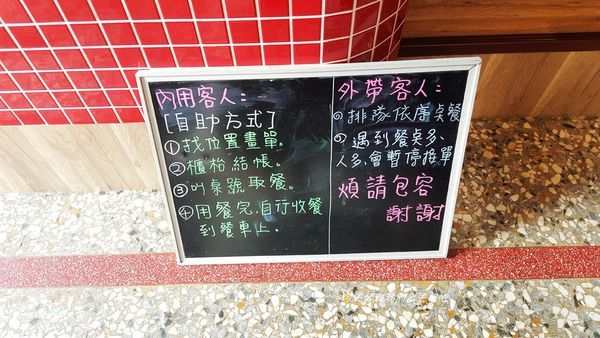 內用客人：
[自助方式]
①找位置畫單。
②櫃枱結帳。
③叫桌號取餐。
④用餐完,自行收餐
到餐車上。
外帶客人：
①排隊依序點餐
②遇到餐桌多、
人多,會暫停接單
煩請包容
謝謝